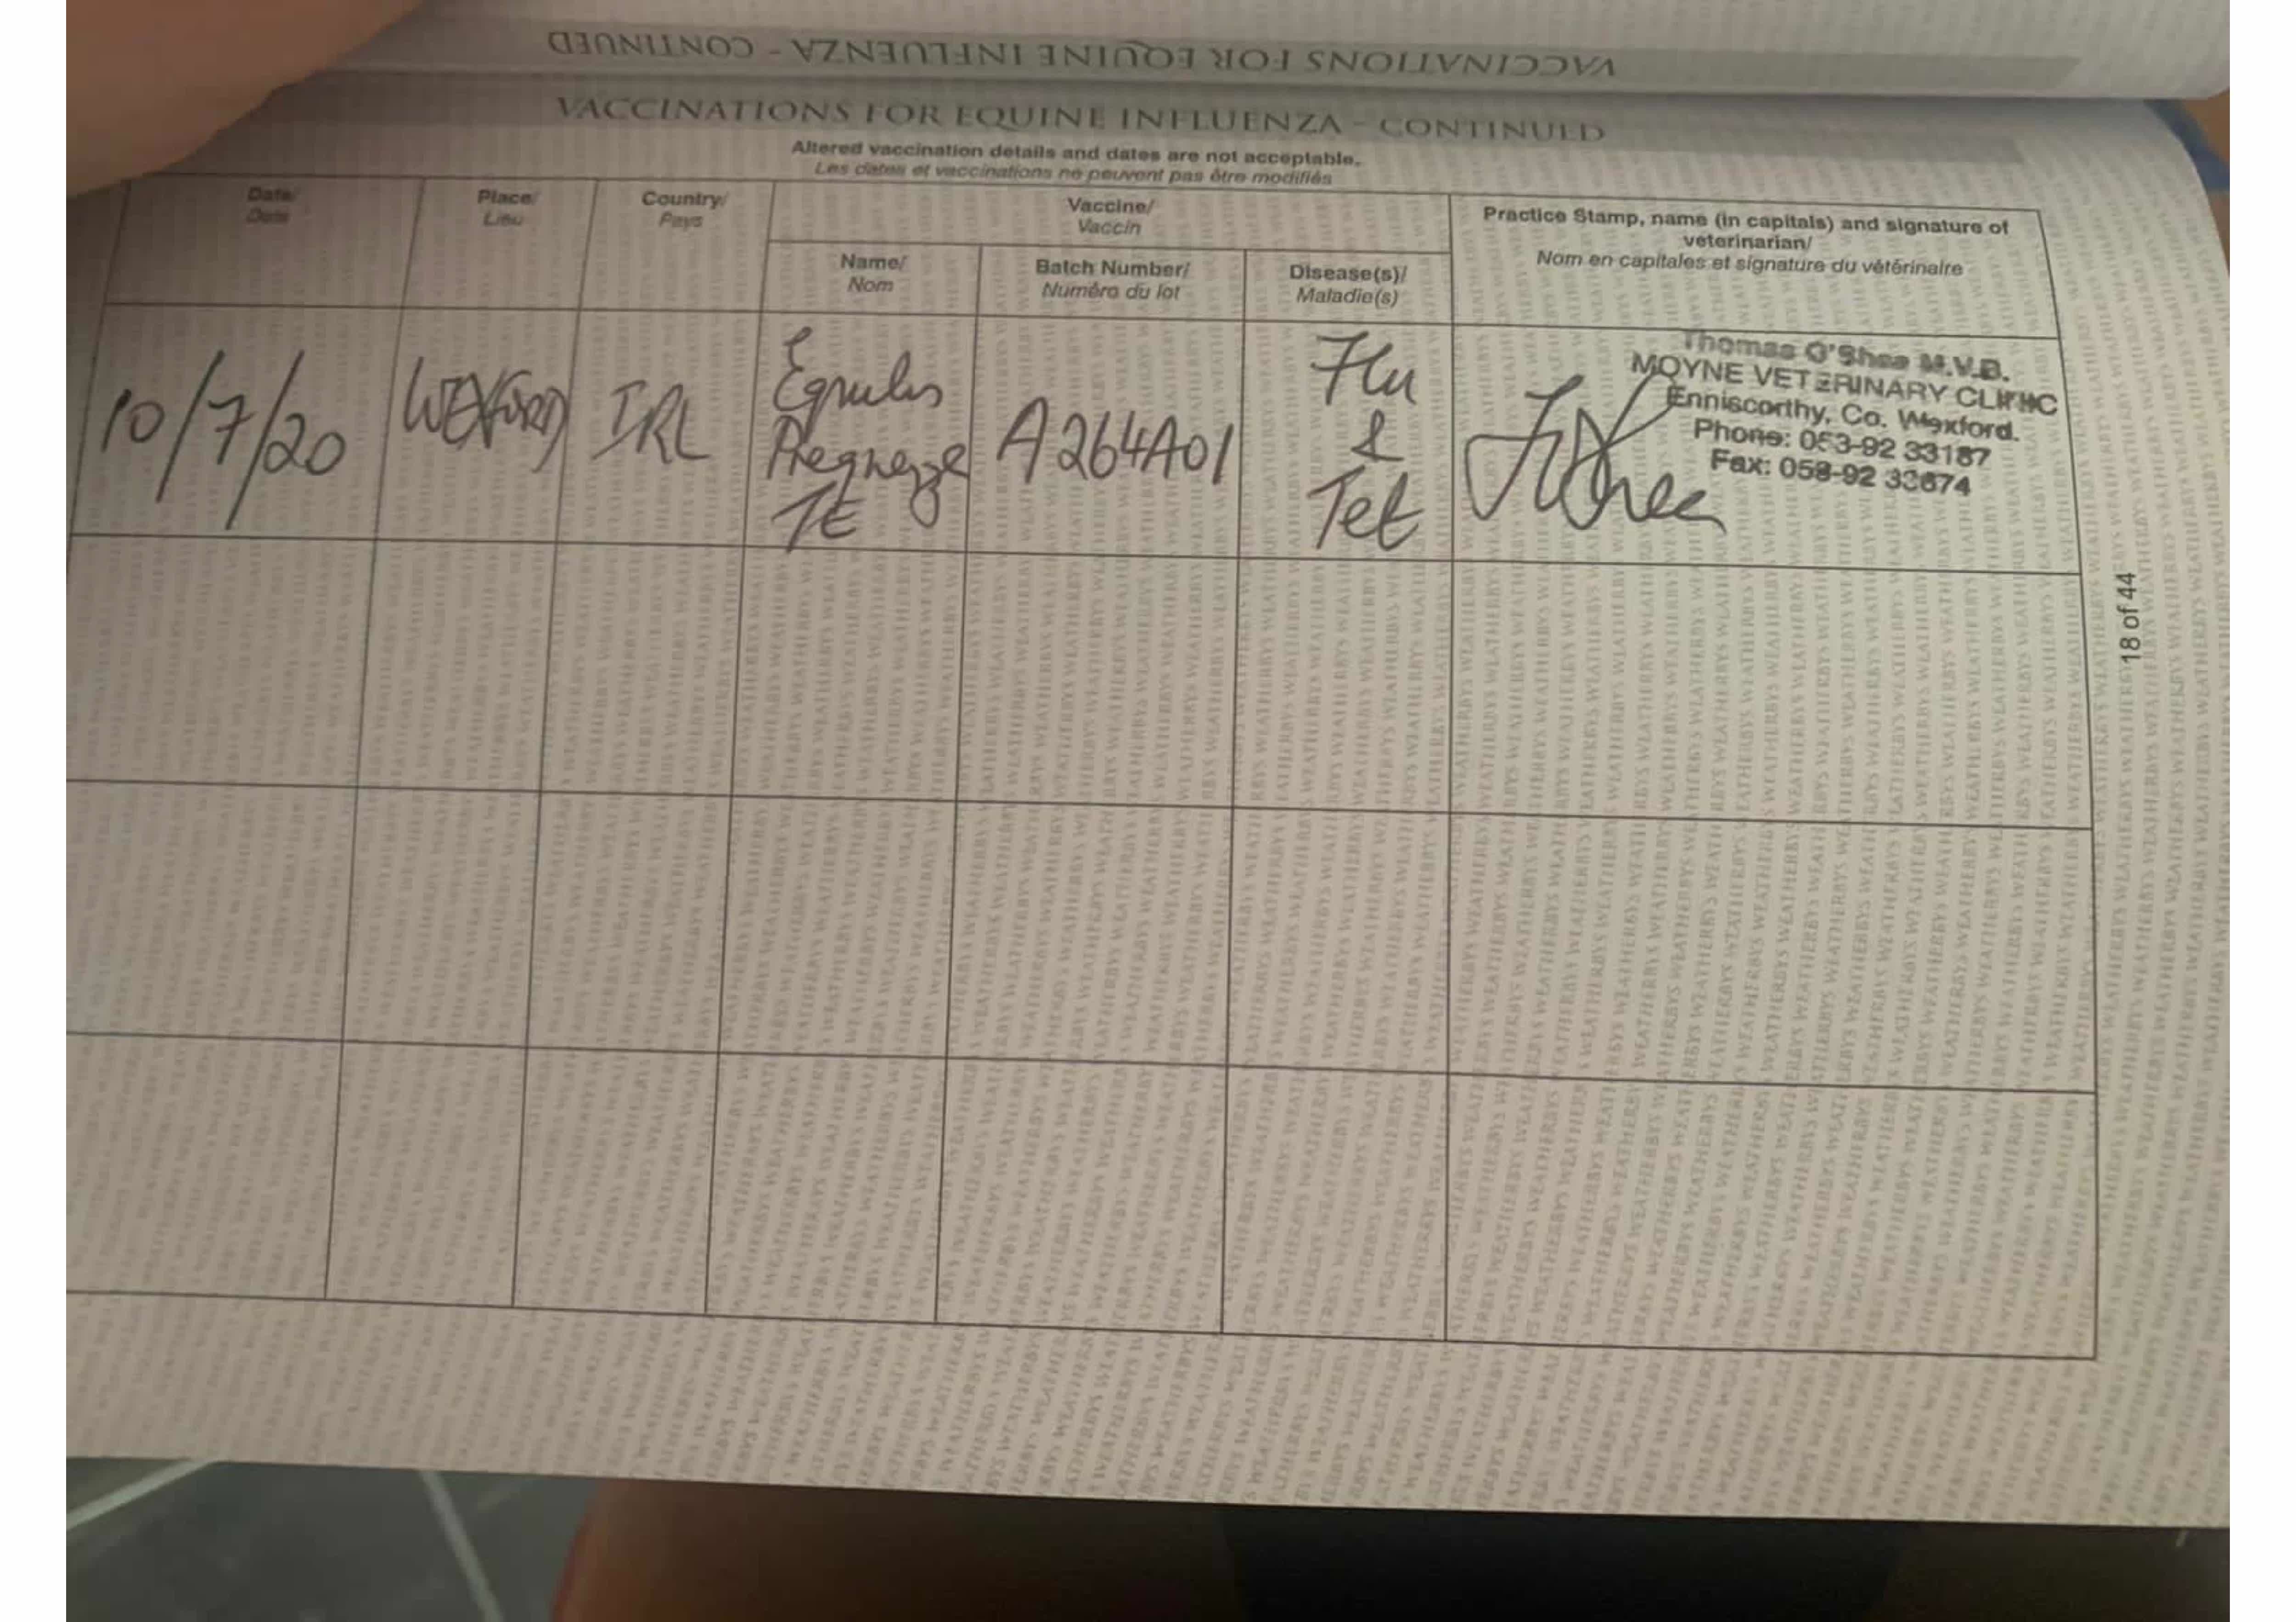 VACCINATIONS FOR EQUINE INFLUENZA - CONTINUED
VACCINATIONS FOR EQUINE INFLUENZA - CONTINUED
Altered vaccination details and dates are not acceptable.
Les dates et vaccinations ne peuvent pas être modifiés
Date/
Date
Place/
Lieu
Country/
Pays
Vaccine/
Vaccin
Name/
Nom
Batch Number/
Numéro du lot
Disease(s)/
Maladie(s)
Practice Stamp, name (in capitals) and signature of
veterinarian/
Nom en capitales et signature du vétérinaire
10/7/20
WEXFORD
IRL
Equilis
TE
A264A01
Flu
&
Tet
Thomas O'Shea M.V.B.
MOYNE VETERINARY CLINIC
Enniscorthy, Co. Wexford.
Phone: 053-92 33187
Fax: 053-92 33674
18 of 44